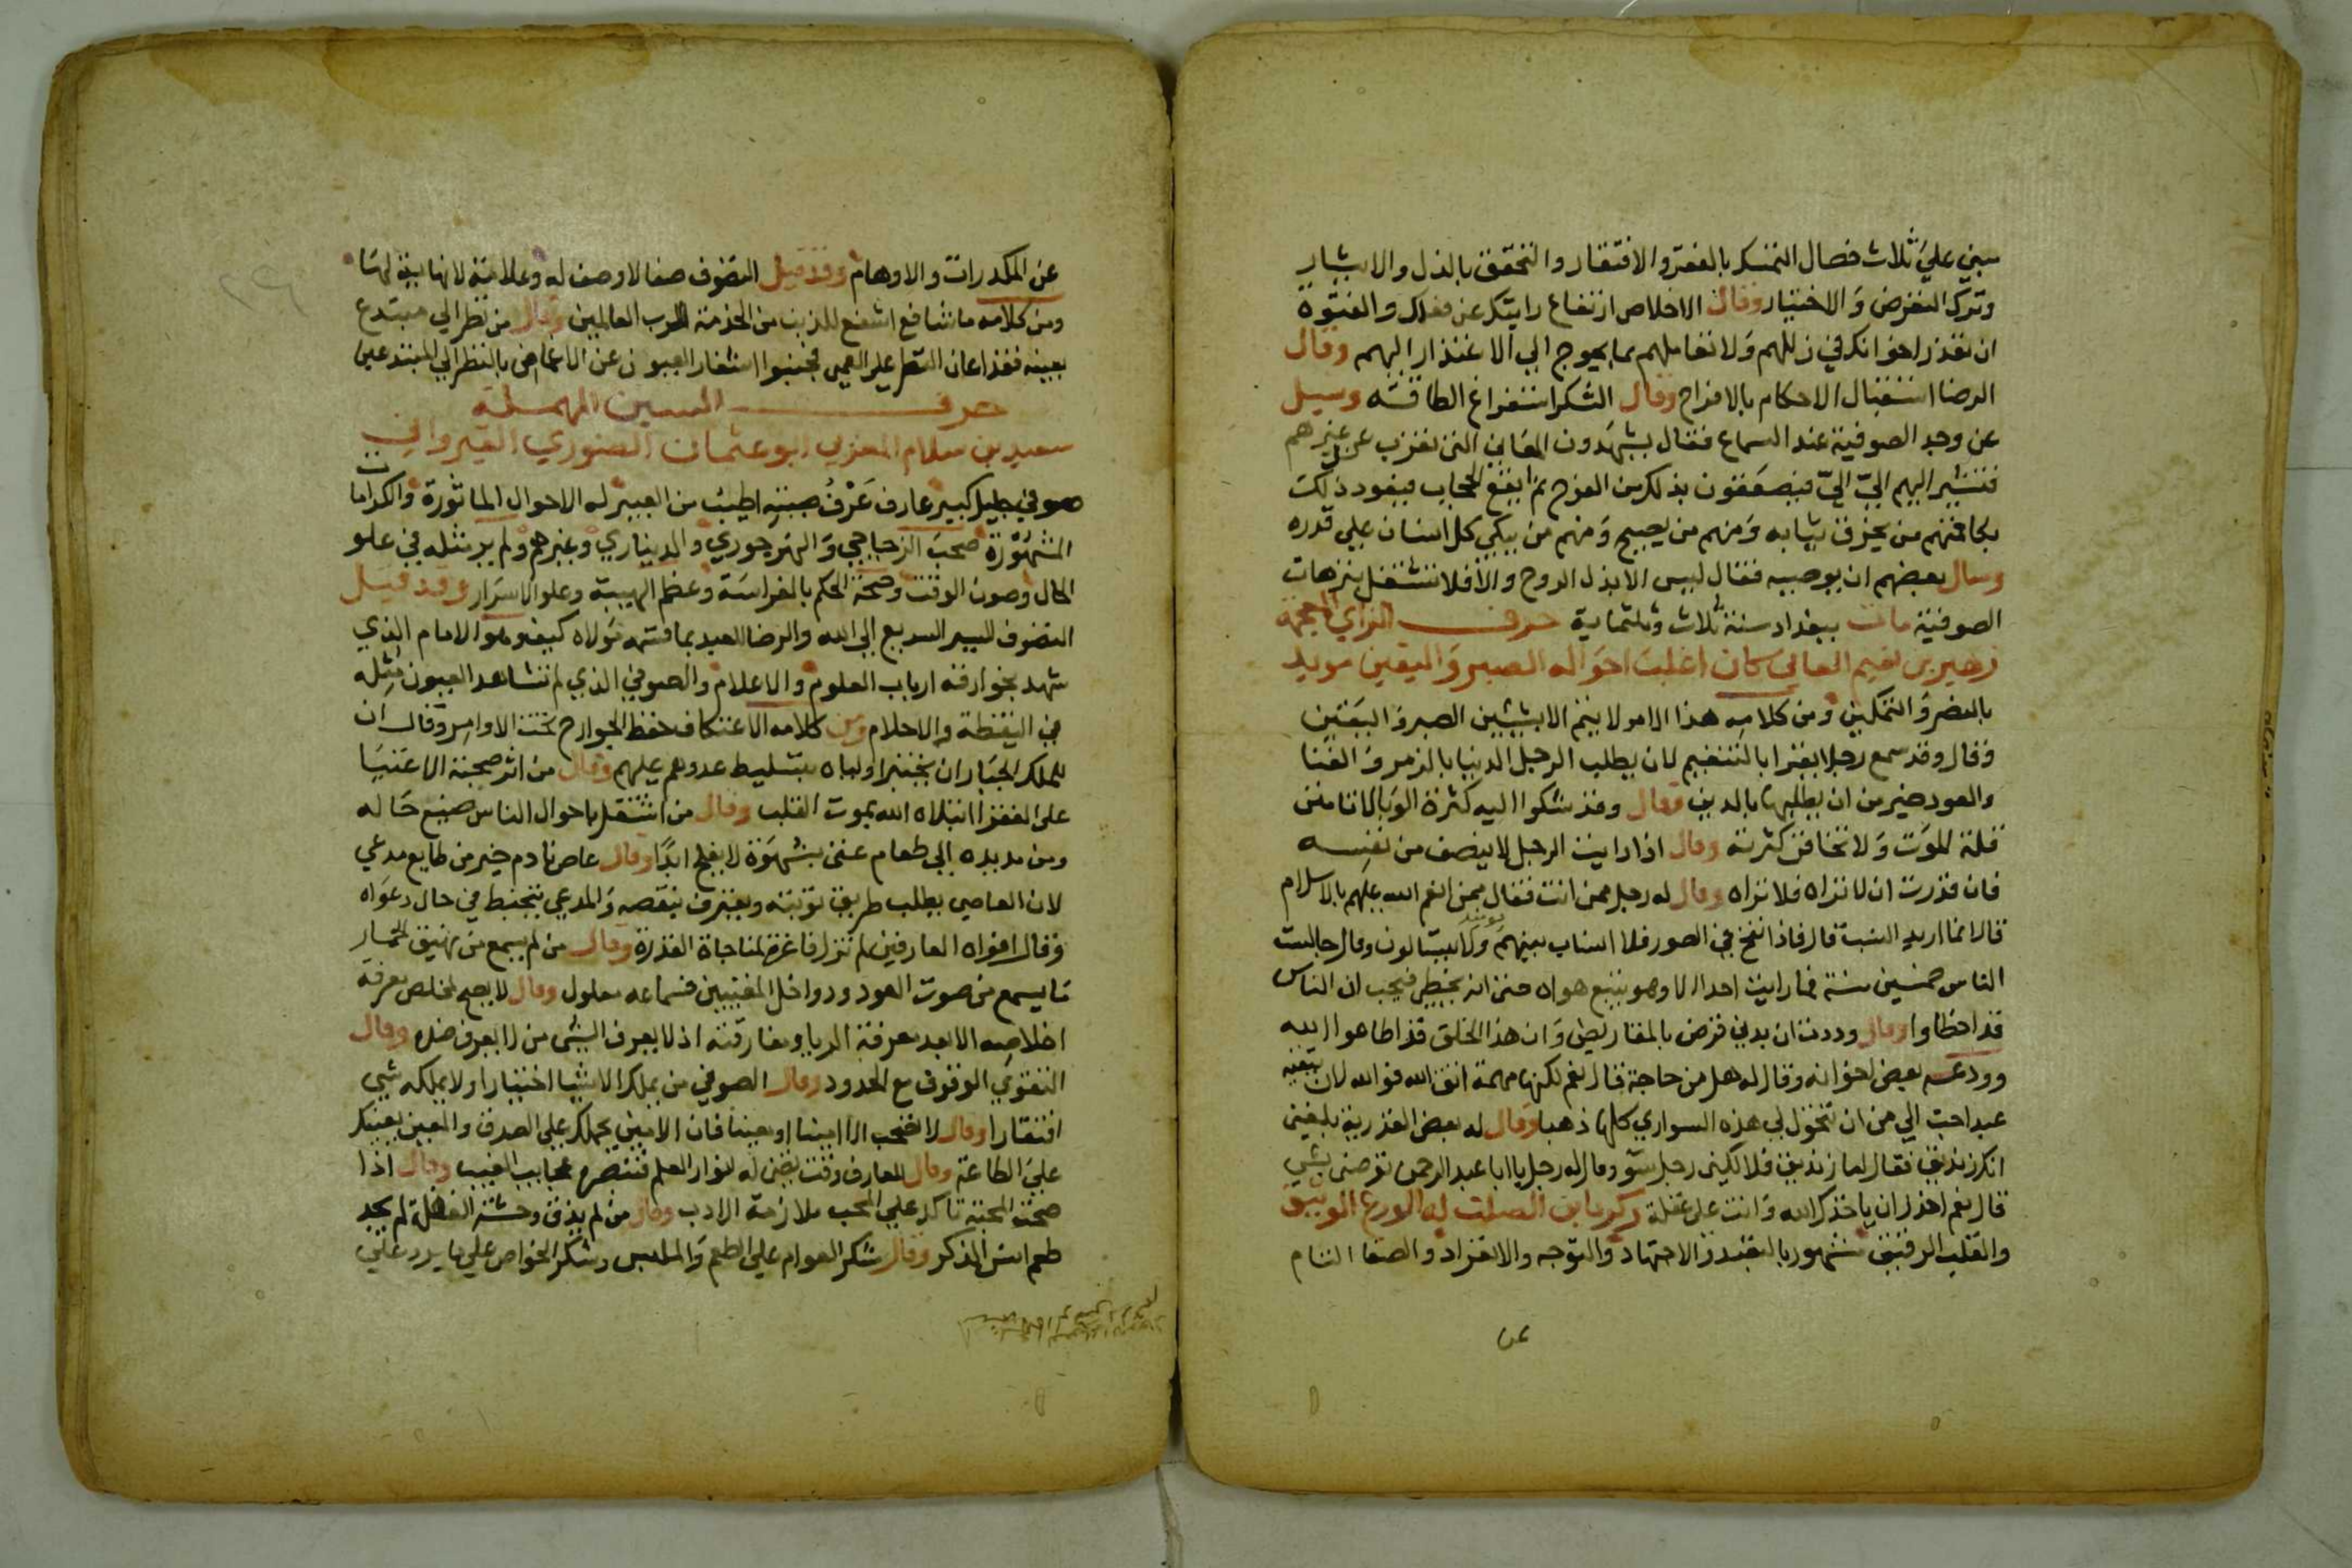 مبني علي ثلاث خصال التمسك بالفقر والافتقار والتحقق بالذل والايثار
وترك التعرض والاختيار وقال الاخلاص ارتفاع رايتك عن فعلك والفتوة
ان تعذر اخوانك في زللهم ولا تعاملهم بما يحوج الي الاعتذار اليهم وقال
الرضا استقبال الاحكام بالافراح وقال الشكر استفراغ الطاقة وسيل
عن وجد الصوفية عند السماع فقال يشهدون المعاني التي تعزب عن غيرهم
فتشير اليهم الي الي فيتنعمون بذلك من الفرح ثم يقع الحجاب فيعود ذلك
بكا فمنهم من يخرق ثيابه ومنهم من يصيح ومنهم من يبكي كل انسان علي قدره
وسال بعضهم ان يوصيه فقال ليس الا بذل الروح والا فلا تشتغل بترهات
الصوفية مات ببغداد سنة ثلاث وثلثماية حرف الزاي المعجمة
زهير بن نعيم البابي كان اغلب احواله الصبر واليقين مويد
بالنصر والتمكين ومن كلامه هذا الامر لا يتم الا بشيئين الصبر واليقين
وقال وقد سمع رجلا يقرا بالتنغيم لان يطلب الرجل الدنيا بالزمر والغنا
والعود خير من ان يطلبها بالدين وقال وقد شكوا اليه كثرة الوبا لانا من
قلة الموت ولا تخاف من كثرته وقال اذا رايت الرجل لا ينصف من نفسه
فان قدرت ان لا تراه فلا تراه وقال له رجل ممن انت فقال ممن انعم الله عليهم بالاسلام
قال انما اريد النسب قال فاذا نفخ في الصور فلا انساب بينهم يومئذ ولا يتسالون وقال جالست
الناس خمسين سنة فما رايت احدا الا وهو يتبع هواه حتى انه يخطي فيحب ان الناس
قد اخطاوا وقال وددت ان بدني قرض بالمقاريض وان هذا الخلق قد اطاعوا الله
وودعه بعض اخوانه وقال له هل من حاجة قال نعم لكنها مهمة اتق الله فوالله لان يتقيه
عبد احب الي من ان تتحول لي هذه السواري كلها ذهبا وقال له بعض القدرية بلغني
انك زنديق فقال اما زنديق فلا لكني رجل سو وقال له رجل يا ابا عبد الرحمن توصني بشي
قال نعم احذر ان ياخذك الله وانت علي غفلة زكريا ابن الصلت له الورع الوثيق
والقلب الرقيق مشهور بالتعبد والاجتهاد والتوجه والانفراد والصفا التام
عن
عن المكدرات والاوهام وقد قيل التصوف صفا لا وصف له وعلامة لا نهاية لها
ومن كلامه ما شافع اشفع للمذنب من الخدمة لرب العالمين وقال من نظر الي مبتدع
بعينه فقد اعان النظر علي العمي فجنبوا اشفار العيون عن الاغماض بالنظر الي المبتدعين
حرف السين المهملة
سعيد بن سلام المغربي ابو عثمان الصوري القيرواني
صوفي جليل كبير عارف عرف صيته اطيب من العبير له الاحوال الماثورة والكرامات
المشهورة صحب الزجاجي والنهرجوري والديناري وغيرهم ولم ير مثله في علو
الحال وصون الوقت وصحة الحكم بالفراسة وعظم الهيبة وعلو الاسرار وقد قيل
التصوف السير السريع الي الله والرضا للعبد بما قسمه مولاه كيف وهو الامام الذي
شهد بخوارقه ارباب العلوم والاعلام والصوفي الذي لم تشاهد العيون مثله
في اليقظة والاحلام ومن كلامه الاعتكاف حفظ الجوارح تحت الاوامر وقال ان
للملك الجبار ان يختبر اولياه بتسليط عدوهم عليهم وقال من اثر صحبة الاغنيا
على الفقرا ابتلاه الله بموت القلب وقال من اشتغل باحوال الناس ضيع حاله
ومن مد يده الي طعام غني بشهوة لا يفلح ابدا وقال عاص نادم خير من طايع مدعي
لان العاصي يطلب طريق توبته ويعترف بنقصه والمدعي يتخبط في حال دعواه
وقال افواه العارفين لم تزل فاغرة لمناجاة القدرة وقال من لم يسمع من نهيق الحمار
ما يسمع من صوت العود ودواخل المغنين فسماعه معلول وقال لا يصح لمخلص معرفة
اخلاصه الا بعد معرفة الريا ومفارقته اذ لا يعرف الشي من لا يعرف ضده وقال
التقوي الوقوف مع الحدود وقال الصوفي من يملك الاشيا اختيارا ولا يملكه شي
افتقارا وقال لا تصحب الا امينا او معينا فان الامين يحملك علي الصدق والمعين يعينك
علي الطاعة وقال العارف وقت تضي له انوار العلم فتبصر به عجايب الغيب وقال اذا
صحت المحبة تاكد علي المحب ملازمة الادب وقال من لم يذق وحشة الغفلة لم يجد
طعم انس الذكر وقال شكر العوام علي الطعم والملبس وشكر الخواص علي ما يرد علي